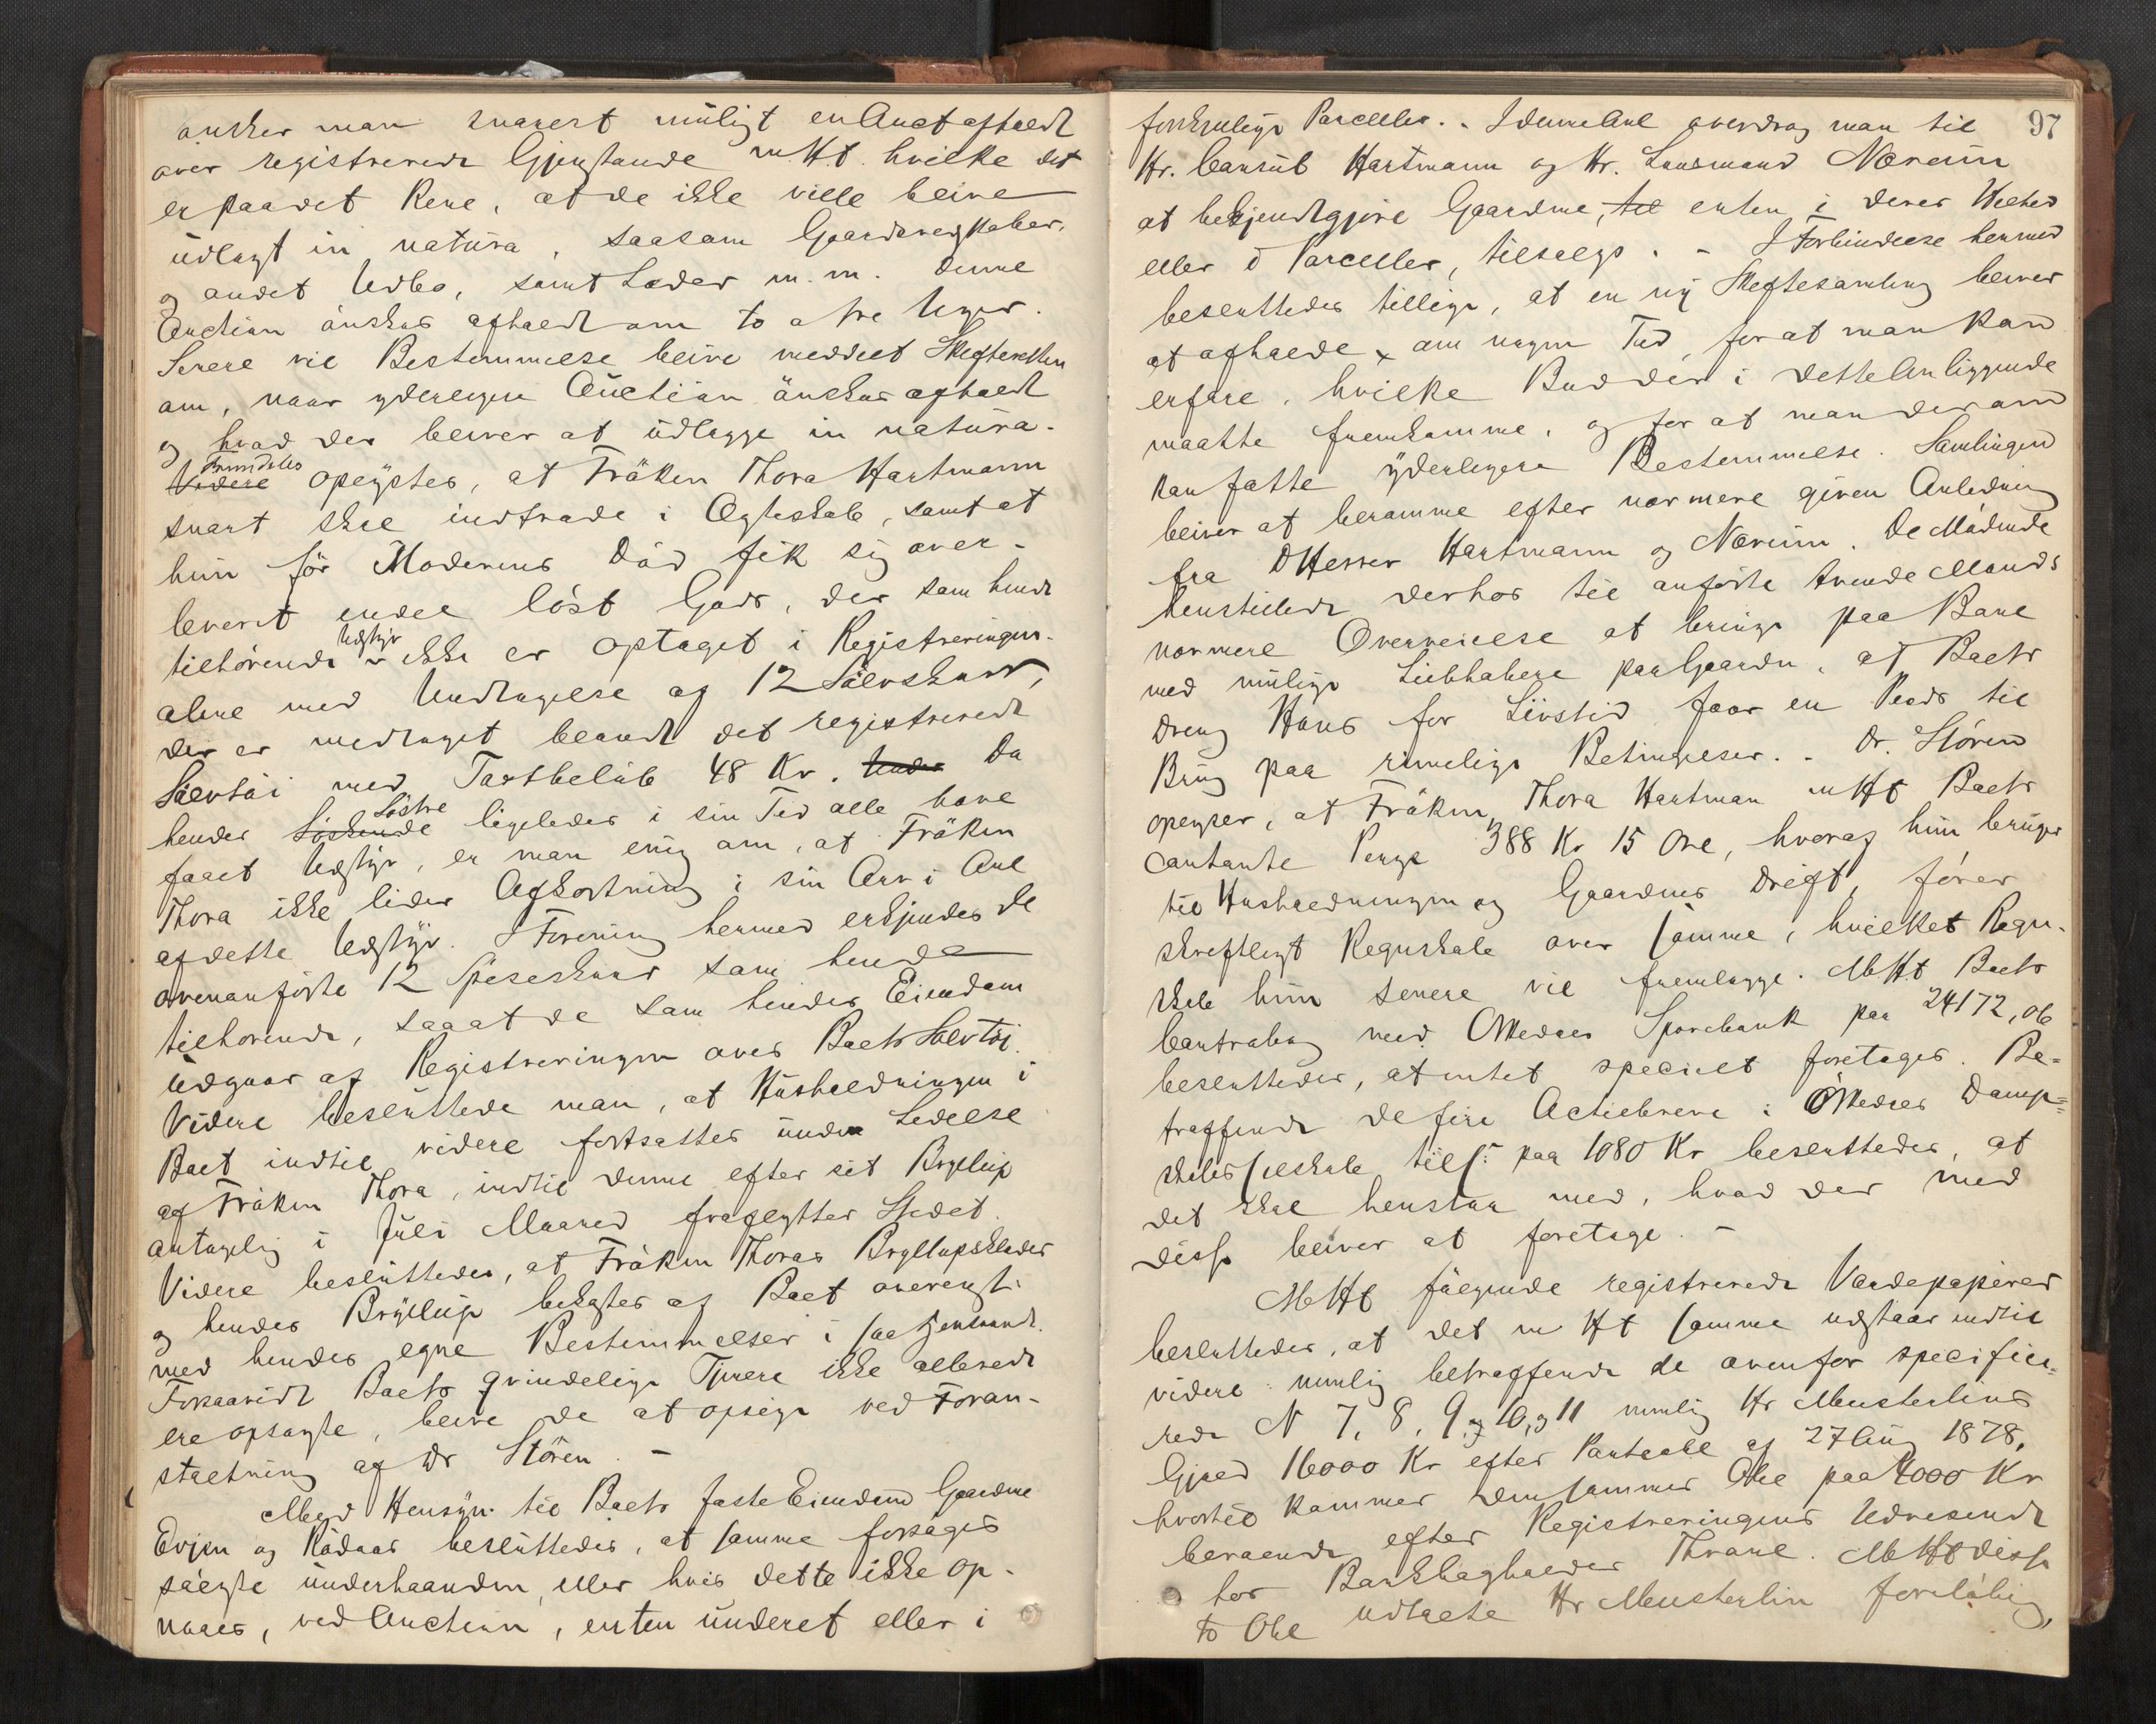 ønsker man snarest muligt en Auct afholdt
over registrerede Gjenstande m. Ht. hvilke det
er paa det Rene, at de ikke ville blive
udlagt in natura, saasom Gaardsredskaber,
og andet Udbo, samt Læder m. m. denne
Auction ønskes afholdt om to a tre Uger.
Senere vil Bestemmelse blive meddelt Skifteretten
om, naar yderligere Auction ønskes afholdt
og hvad der bliver at udlægge in natura.
Videre Fremdeles oplystes, at Frøken Thora Hartmann
snart skal indtræde i Ægteskab, samt at
hun før Moderens Død fik sig over-
leveret endel løst Gods, der som hende
tilhørende Udstyr ikke er optaget i Registreringen
alene med Undtagelse af 12 Sølvskeer,
der er medtaget blandt det registrerede
Sølvtøi med Taxtbeløb 48 Kr. Under Da
hendes Søskende Søstre ligeledes i sin Tid alle have
faaet Udstyr, er man enig om, at Frøken
Thora ikke lider Afkortning i sin Arv i Anl
af dette Udstyr. I Forening hermed erkjendes de
ovenanførte 12 Spiseskeer som hende
tilhørende, saa at de som hendes Eiendom
udgaar af Registreringen over Boets Sølvtøi.
Videre besluttede man, at Husholdningen i
Boet indtil videre fortsættes under Ledelse
af Frøken Thora, indtil denne efter sit Bryllup
antagelig i Juli Maaned fraflytter Stedet.
Videre besluttedes, at Frøken Thoras Bryllupsklæder
og hendes Bryllup bekostes af Boet overensst.
med hendes egne Bestemmelser i saa Henseende.
Forsaavidt Boets qvindelige Tjenere ikke allerede
ere opsagte, blive de at opsige ved Foran-
staltning af Dr Støren. -
Med Hensyn til Boets faste Eiendom Gaardene
Evjen og Rødaas besluttedes, at samme forsøges
solgte underhaanden, eller hvis dette ikke op-
naaes, ved Auction, enten underet eller i
97
forskjellige Parceller. - I denne Anl overdrog man til
Hr. Consul Hartmann og Hr. Lensmand Næreim
at bekjendtgjøre Gaardene, til enten i deres Helhed
eller i Parceller, tilsalgs. - I Forbindelse hermed
besluttedes tillige, at en ny Skiftesamling bliver
at afholde om nogen Tid, for at man kan
erfare, hvilke Bud der i dette Anliggende
maatte fremkomme, og for at man derom
kan fatte yderligere Bestemmelse. Samlingen
bliver at beramme efter nærmere given Anledning
fra DHerrer Hartmann og Næreim. De Mødende
henstillede derhos til anførte tvende Mænds
nærmere Overveielse at bringe paa Bane
med mulige Liebhabere paa Gaarden, at Boets
Dreng Hans for Livstid faar en Plads til
Brug paa rimelige Betingelser. - Dr. Støren
oplyser, at Frøken Thora Hartman m Ht Boets
contante Penge 388 Kr 15 Øre, hvoraf hun bruger
til Husholdningen og Gaardens Drift, fører
skriftligt Regnskab over samme, hvilket Regn-
skab hun senere vil fremlægge. M. Ht Boets
Contrabog med Ørkedals Sparebank paa 24172,06
besluttedes, at intet specielt foretages. Be-
træffende de fire Actiebreve i Ørkedals Damp-
skibsselskab tils: paa 1080 Kr besluttedes, at
det skal henstaa med, hvad der med
disse bliver at foretage. -
M. Ht følgende registrerede Værdipapirer
besluttedes, at det m Ht samme udstaar indtil
videre: nemlig betræffende de ovenfor specifice-
rede N 7, 8, 9, og 10, og 11 nemlig Hr Meusterlins
Gjæld 16000 Kr efter Pantobl af 27 Aug 1878,
hvortil kommer densammes Obl paa 4000 Kr
beroende efter Registreringens Udvisende
hos Banklagholder Thrane. M Ht disse
to Obl udtalte Hr Meusterlin foreløbig,